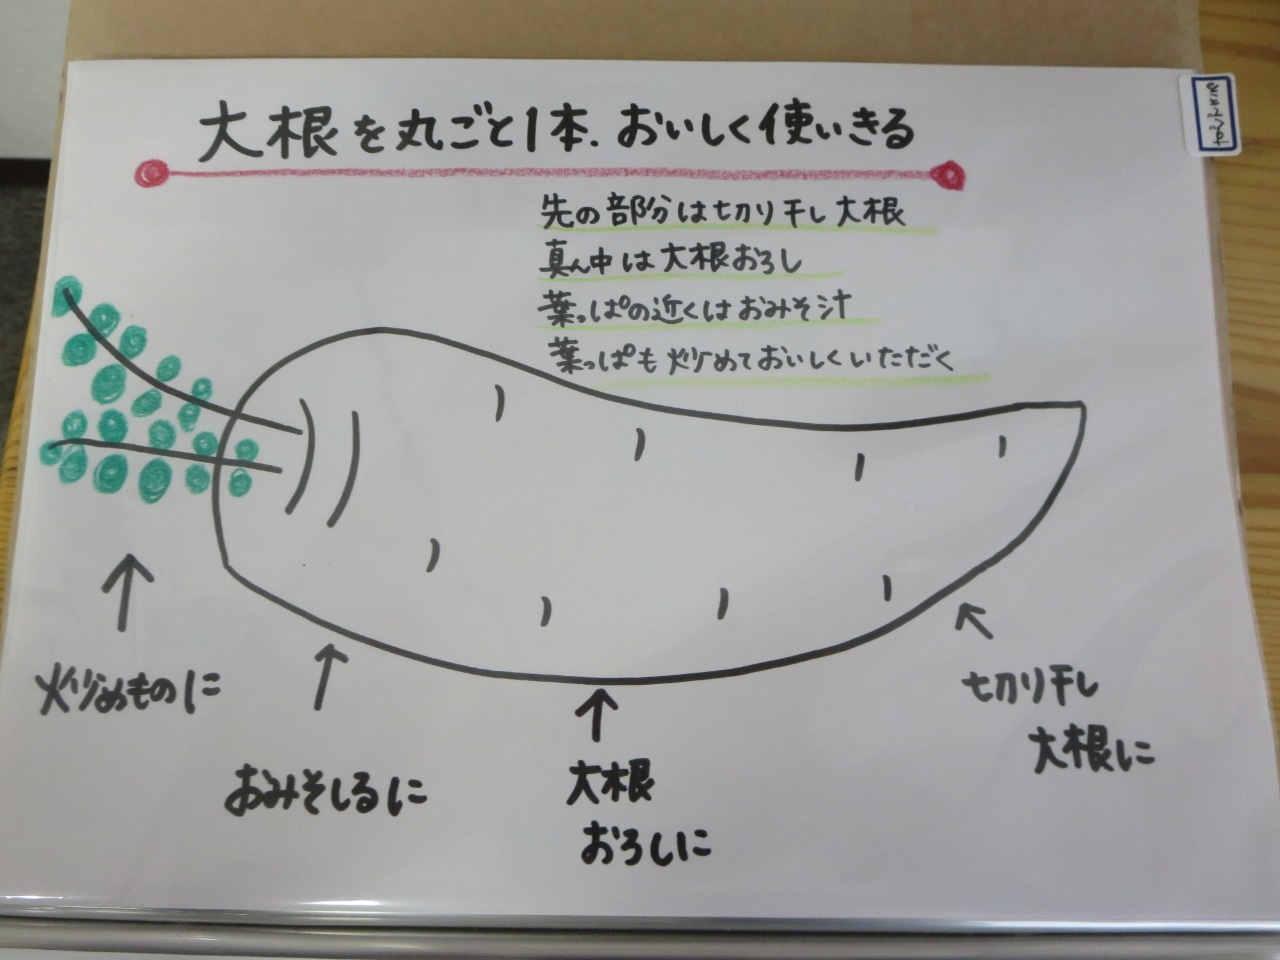 大根を丸ごと1本、おいしく使いきる
先の部分は切り干し大根
真ん中は大根おろし
葉っぱの近くはおみそ汁
葉っぱも炒めておいしくいただく
炒めものに
おみそしるに
大根
おろしに
切り干し
大根に